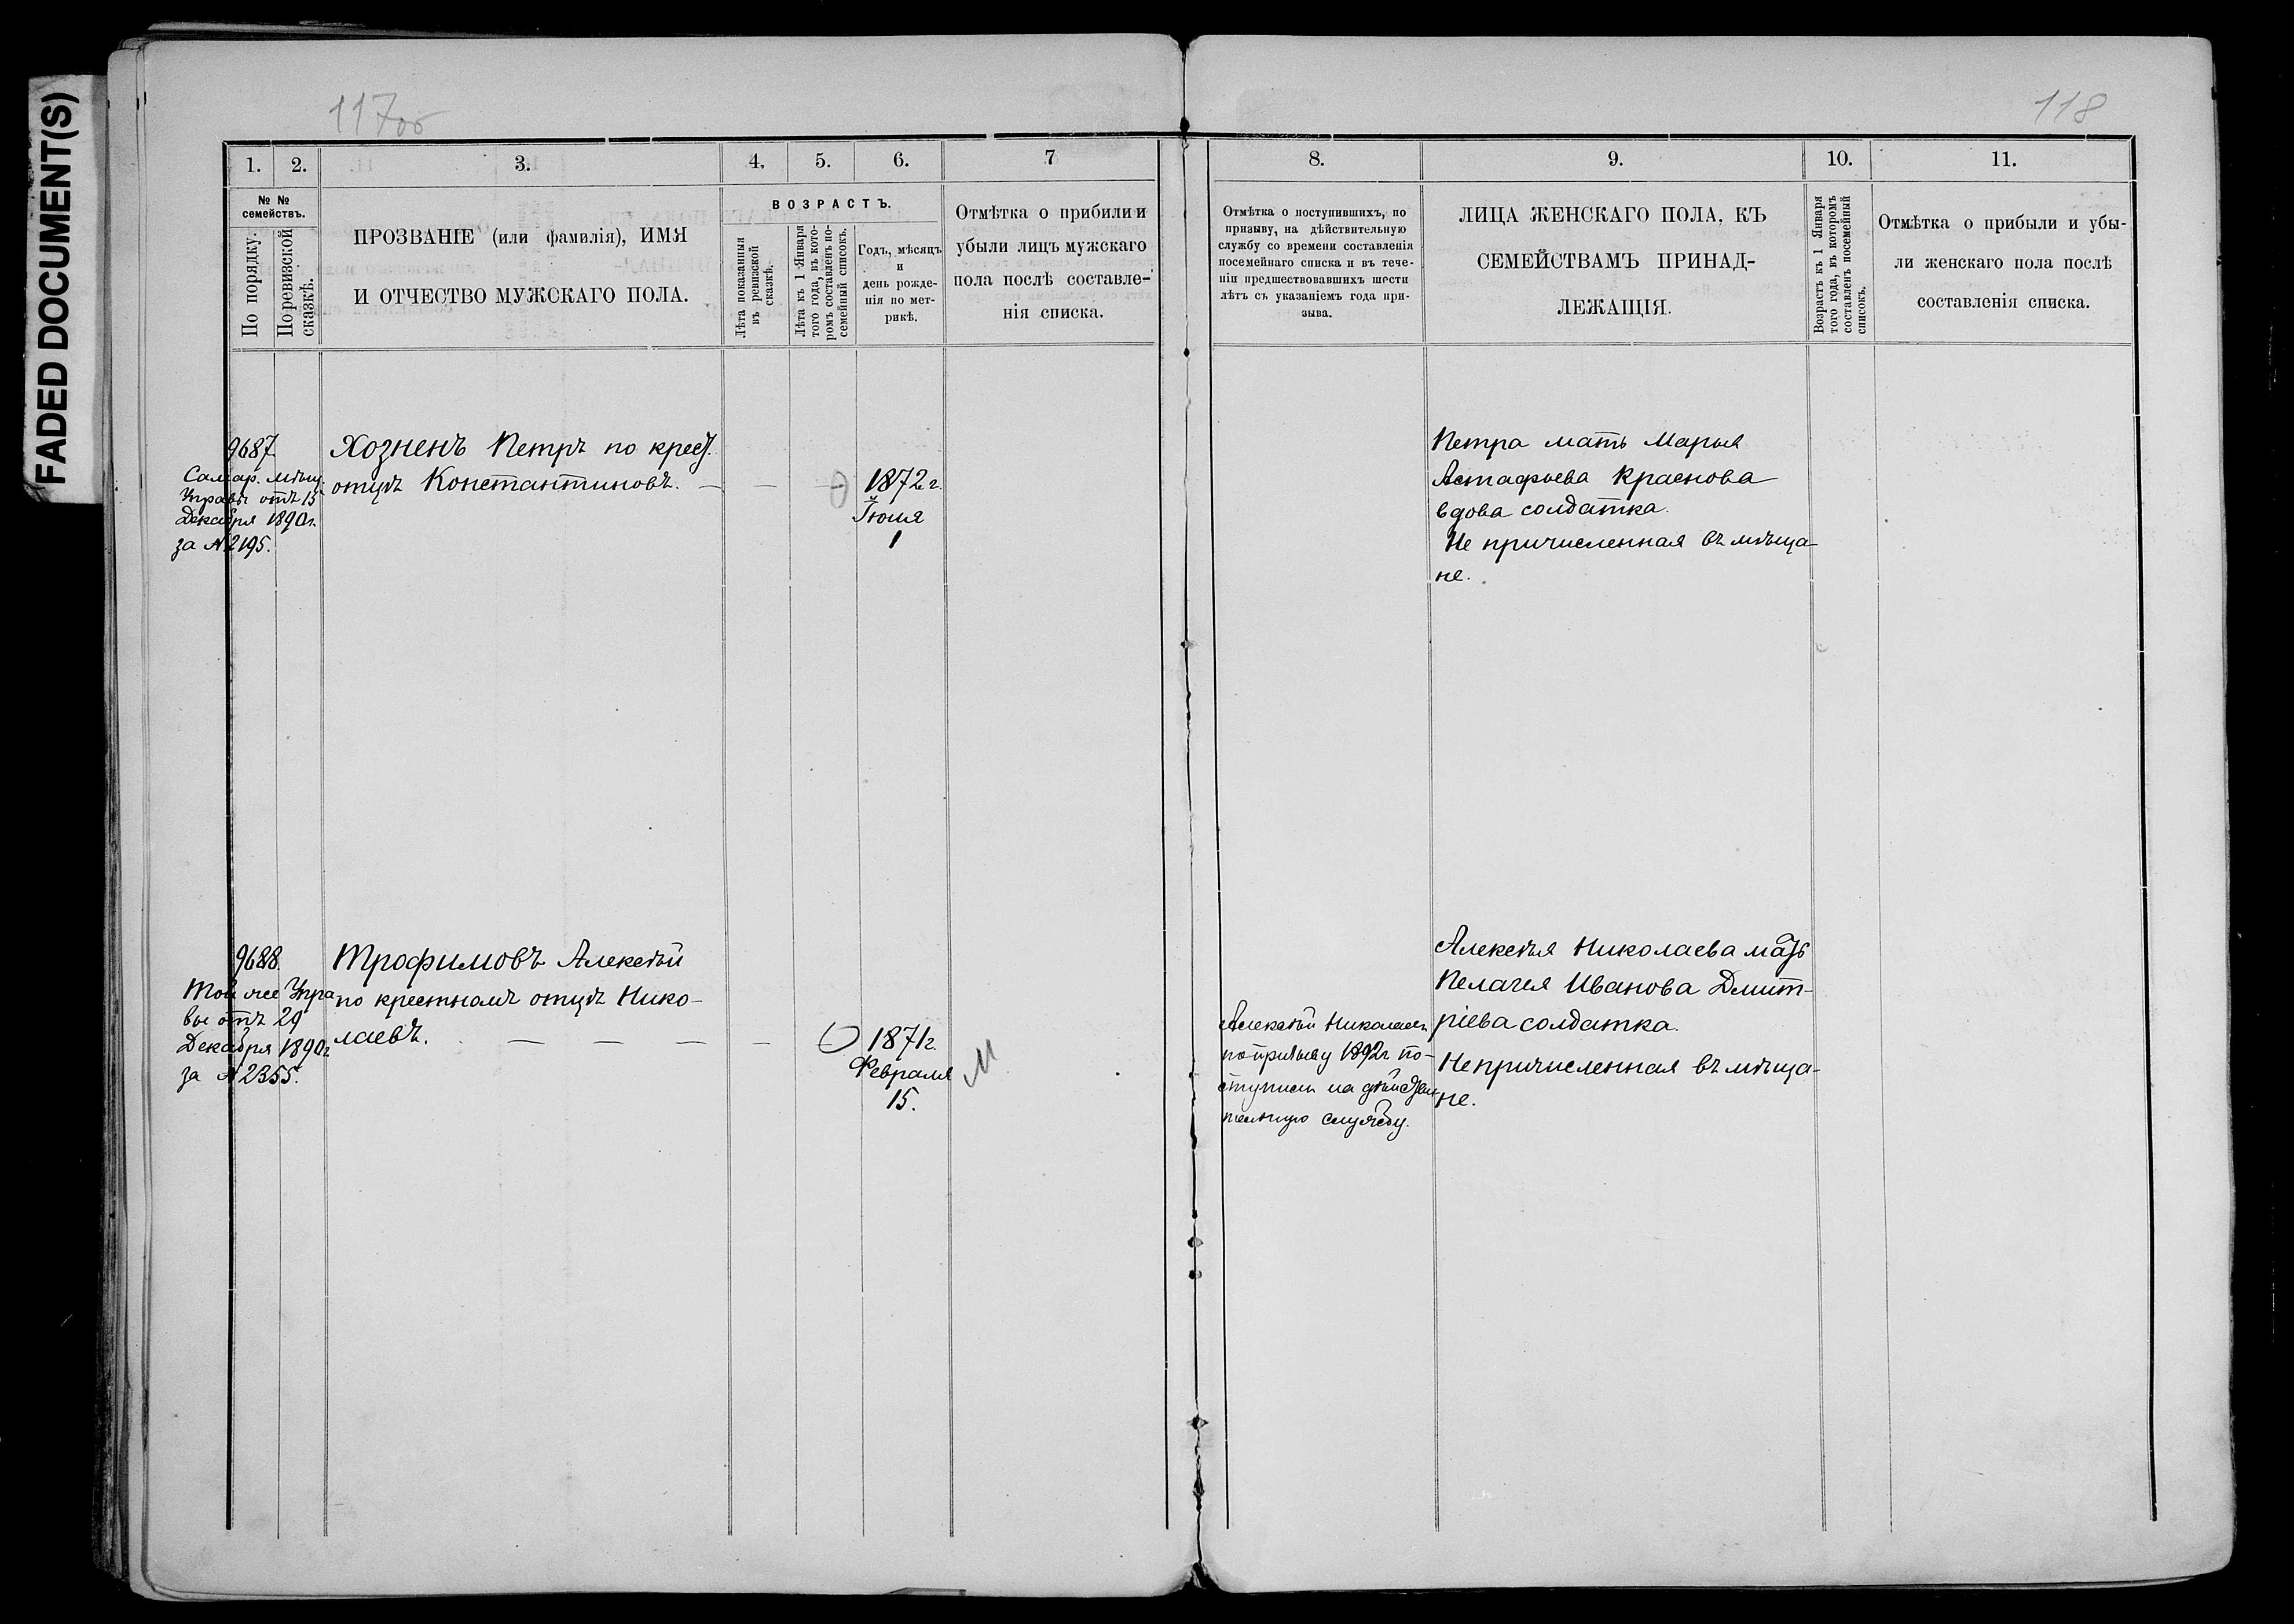 FADED DOCUMENT(S)
117об
118
1.
2.
3.
4.
5.
6.
7
8.
9.
10.
11.
№ №
семействъ.
По порядку.
По ревизской
сказкѣ.
ПРОЗВАНІЕ (или фамилія), ИМЯ
И ОТЧЕСТВО МУЖСКАГО ПОЛА.
ВОЗРАСТЪ.
Лѣта показанныя
въ ревизской
сказкѣ.
Лѣта къ 1 Января
того года, въ кото-
ромъ составленъ по-
семейный списокъ.
Годъ, мѣсяцъ
и
день рожде-
нія по мет-
рикѣ.
Отмѣтка о прибыли и
убыли лицъ мужскаго
пола послѣ составле-
нія списка.
Отмѣтка о поступившихъ, по
призыву, на дѣйствительную
службу со времени составленія
посемейнаго списка и въ тече-
ніи предшествовавшихъ шести
лѣтъ съ указаніемъ года при-
зыва.
ЛИЦА ЖЕНСКАГО ПОЛА, КЪ
СЕМЕЙСТВАМЪ ПРИНАД-
ЛЕЖАЩІЯ.
Возрастъ къ 1 Января
того года, въ которомъ
составленъ посемейный
списокъ.
Отмѣтка о прибыли и убы-
ли женскаго пола послѣ
составленія списка.
9687.
Самар. мѣщ.
Управы отъ 15
Декабря 1890г.
за № 2195.
Хозненъ Петръ по крест.
отцѣ Константиновъ.
1872 г.
Іюня
1
Петра мать Марья
Астафьева Краснова
вдова солдатка.
Не причисленная въ мѣща-
не.
9688.
Той же Упра
вы отъ 29
Декабря 1890г
за № 2355.
Трофимовъ Алексѣй
по крестномъ отцѣ Нико-
лаевъ.
1871г.
Февраля
15.
М
Алексѣй Николаевъ
по призыву 1892г по-
ступилъ на дѣйстви
тельную службу.
Алексѣя Николаева мать
Пелагея Иванова Дмит-
ріева солдатка.
Не причисленная въ мѣща-
не.